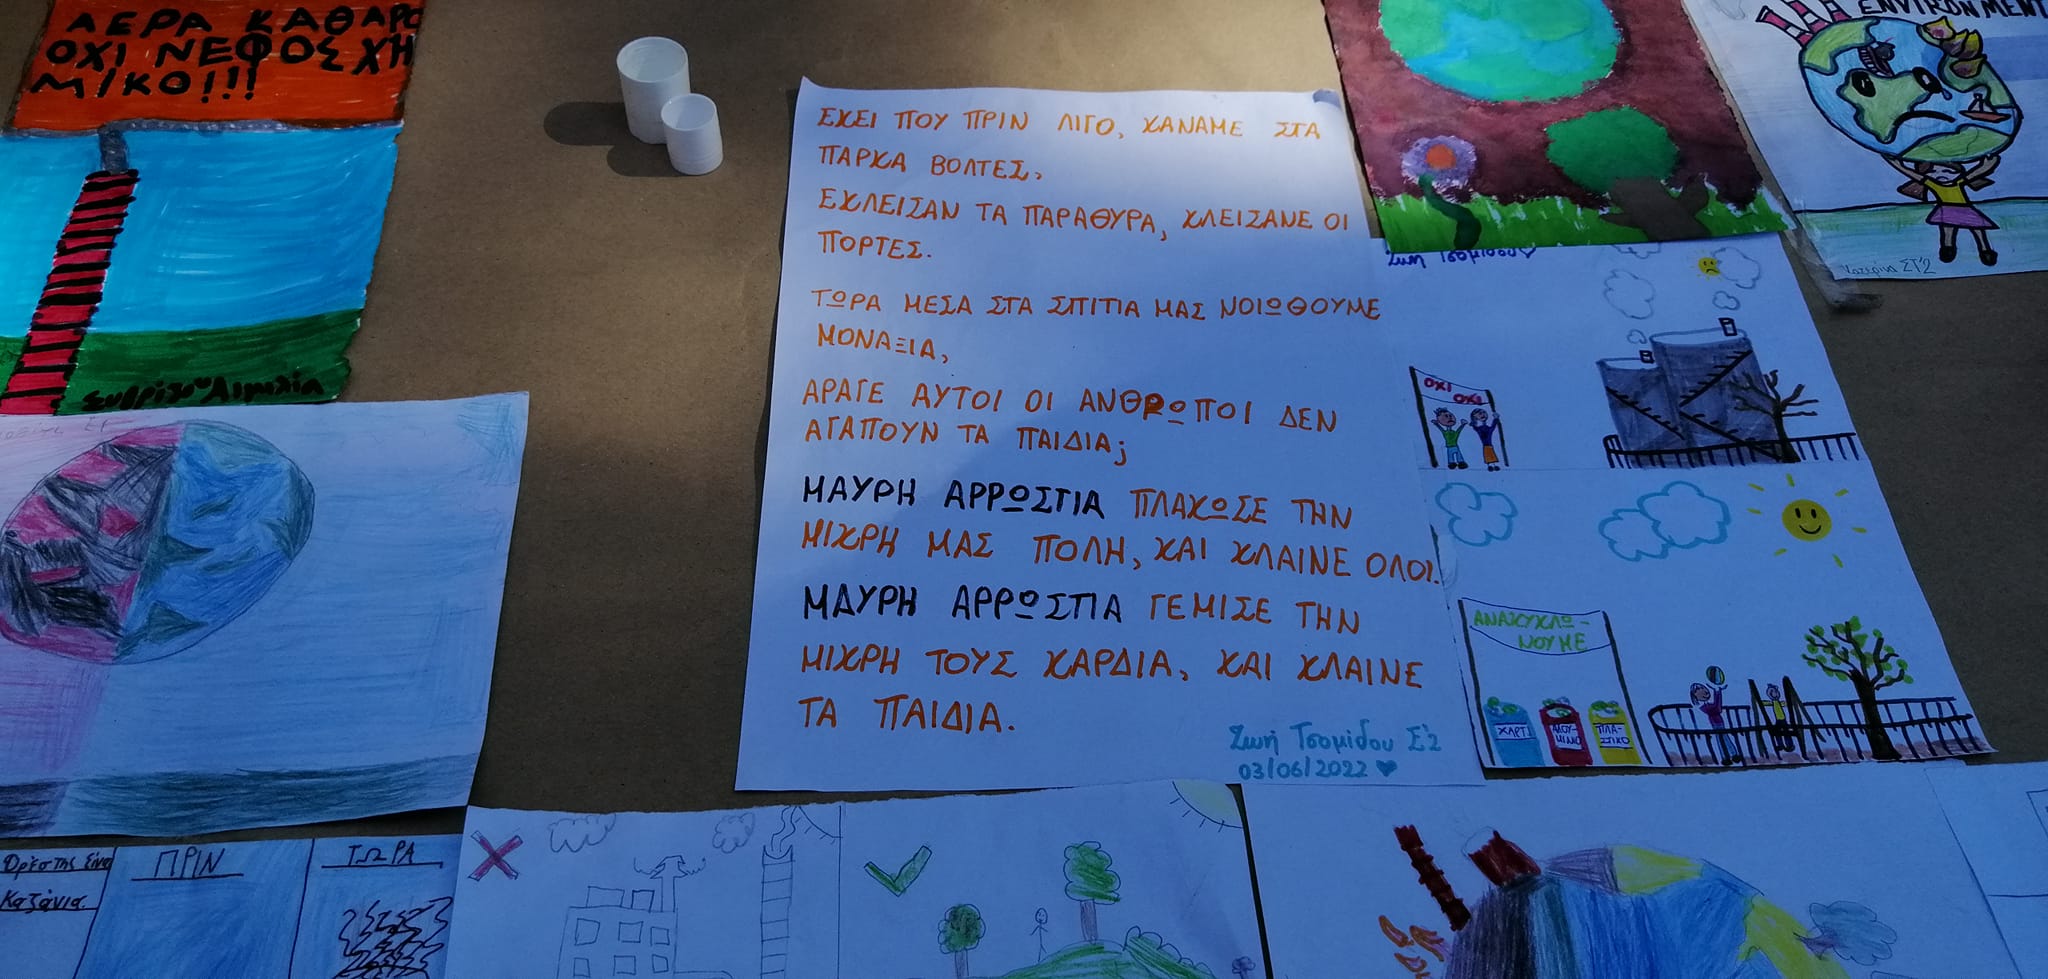 ΑΕΡΑ ΚΑΘΑΡΟ
ΟΧΙ ΝΕΦΟΣ ΧΗ
ΜΙΚΟ!!!
ENVIRONMENT
Κατερίνα ΣΤ'2
ΕΚΕΙ ΠΟΥ ΠΡΙΝ ΛΙΓΟ, ΚΑΝΑΜΕ ΣΤΑ
ΠΑΡΚΑ ΒΟΛΤΕΣ,
ΕΚΛΕΙΣΑΝ ΤΑ ΠΑΡΑΘΥΡΑ, ΚΛΕΙΣΑΝΕ ΟΙ
ΠΟΡΤΕΣ.
ΤΩΡΑ ΜΕΣΑ ΣΤΑ ΣΠΙΤΙΑ ΜΑΣ ΝΟΙΩΘΟΥΜΕ
ΜΟΝΑΞΙΑ,
ΑΡΑΓΕ ΑΥΤΟΙ ΟΙ ΑΝΘΡΩΠΟΙ ΔΕΝ
ΑΓΑΠΟΥΝ ΤΑ ΠΑΙΔΙΑ;
ΜΑΥΡΗ ΑΡΡΩΣΤΙΑ ΠΛΑΚΩΣΕ ΤΗΝ
ΜΙΚΡΗ ΜΑΣ ΠΟΛΗ, ΚΑΙ ΚΛΑΙΝΕ ΟΛΟΙ.
ΜΑΥΡΗ ΑΡΡΩΣΤΙΑ ΓΕΜΙΣΕ ΤΗΝ
ΜΙΚΡΗ ΤΟΥΣ ΚΑΡΔΙΑ, ΚΑΙ ΚΛΑΙΝΕ
ΤΑ ΠΑΙΔΙΑ.
Ζωή Τσομίδου Σ'2
03/06/2022
Ζωή Τσομίδου
ΟΧΙ
ΟΧΙ
ΑΝΑΚΥΚΛΩ-
ΝΟΥΜΕ
ΧΑΡΤΙ
ΑΛΟΥ-
ΜΙΝΙΟ
ΠΛΑ-
ΣΤΙΚΟ
Ορέστης
Καζάνια.
ΠΡΙΝ
ΤΩΡΑ